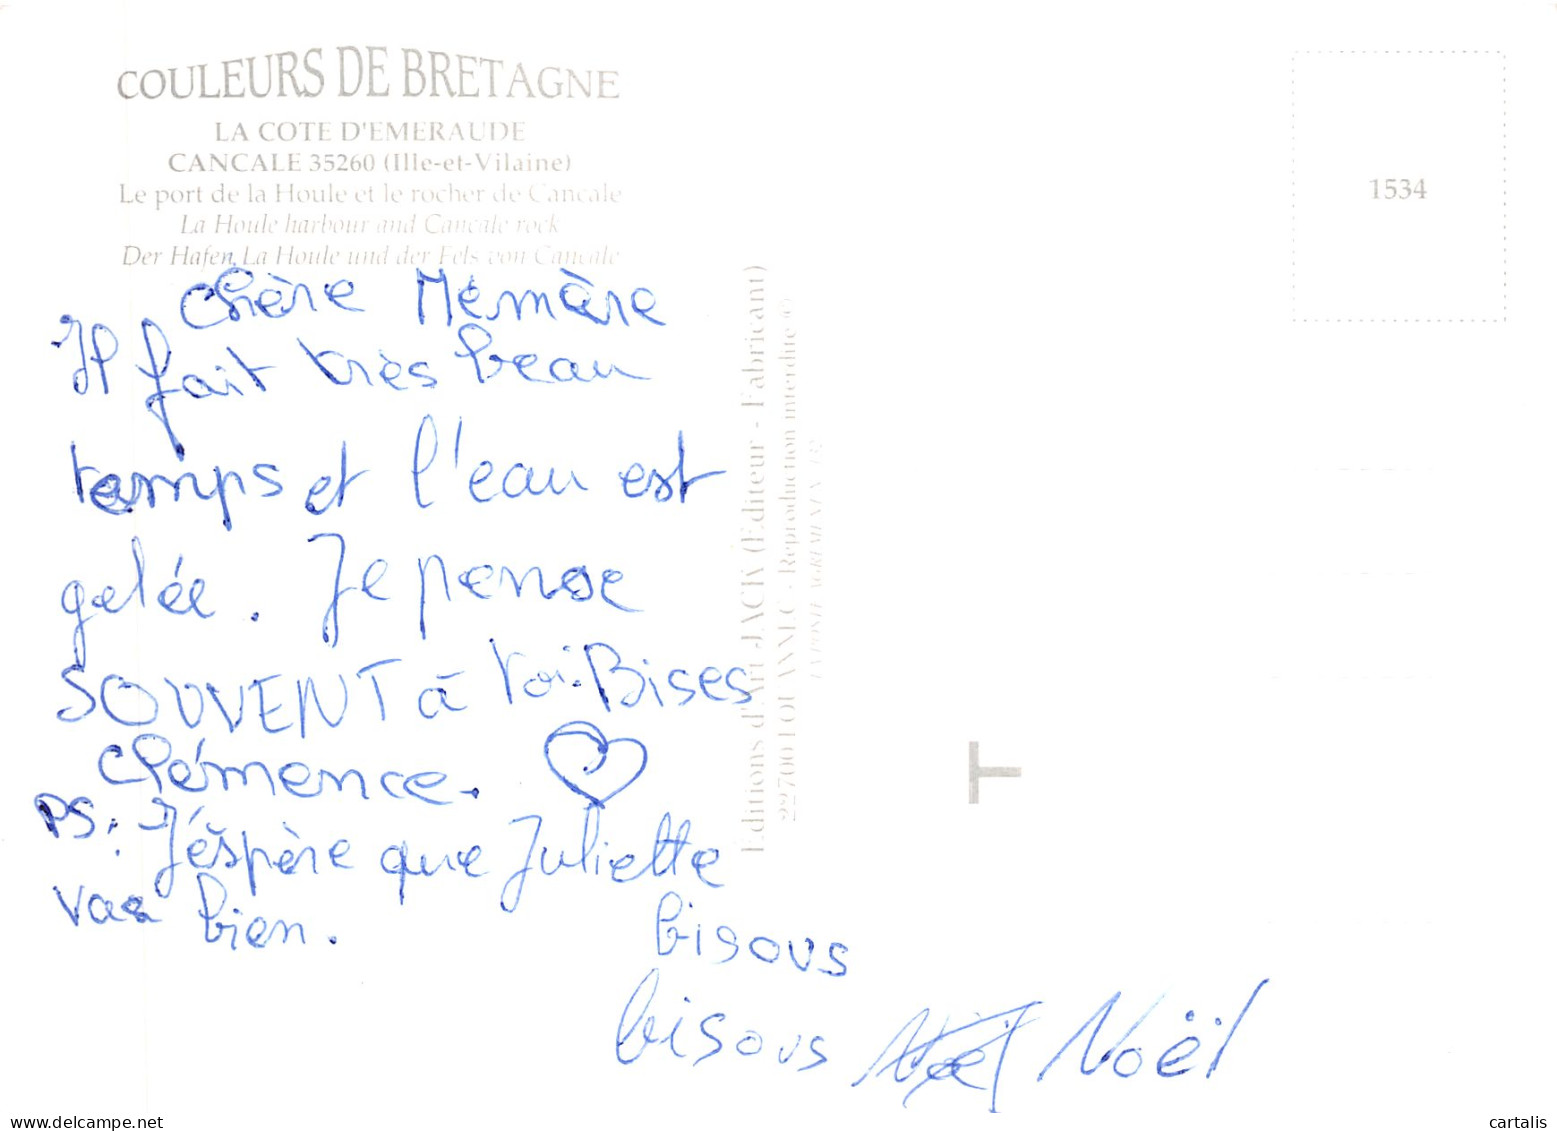 COULEURS DE BRETAGNE
LA COTE D'EMERAUDE
CANCALE 35260 (Ille-et-Vilaine)
Le port de la Houle et le rocher de Cancale
La Houle harbour and Cancale rock
Der Hafen La Houle und der Fels von Cancale
1534
Chère Mémère
Il fait très beau
temps et l'eau est
gelée. Je pense
SOUVENT à toi. Bises
Clémence.
PS: J'éspère que Juliette
vaa bien.
bisous
bisous Noël Noël
Editions d'Art JACK (Editeur - Fabricant)
22700 LOUANNEC - Reproduction interdite ©
T
cartalis